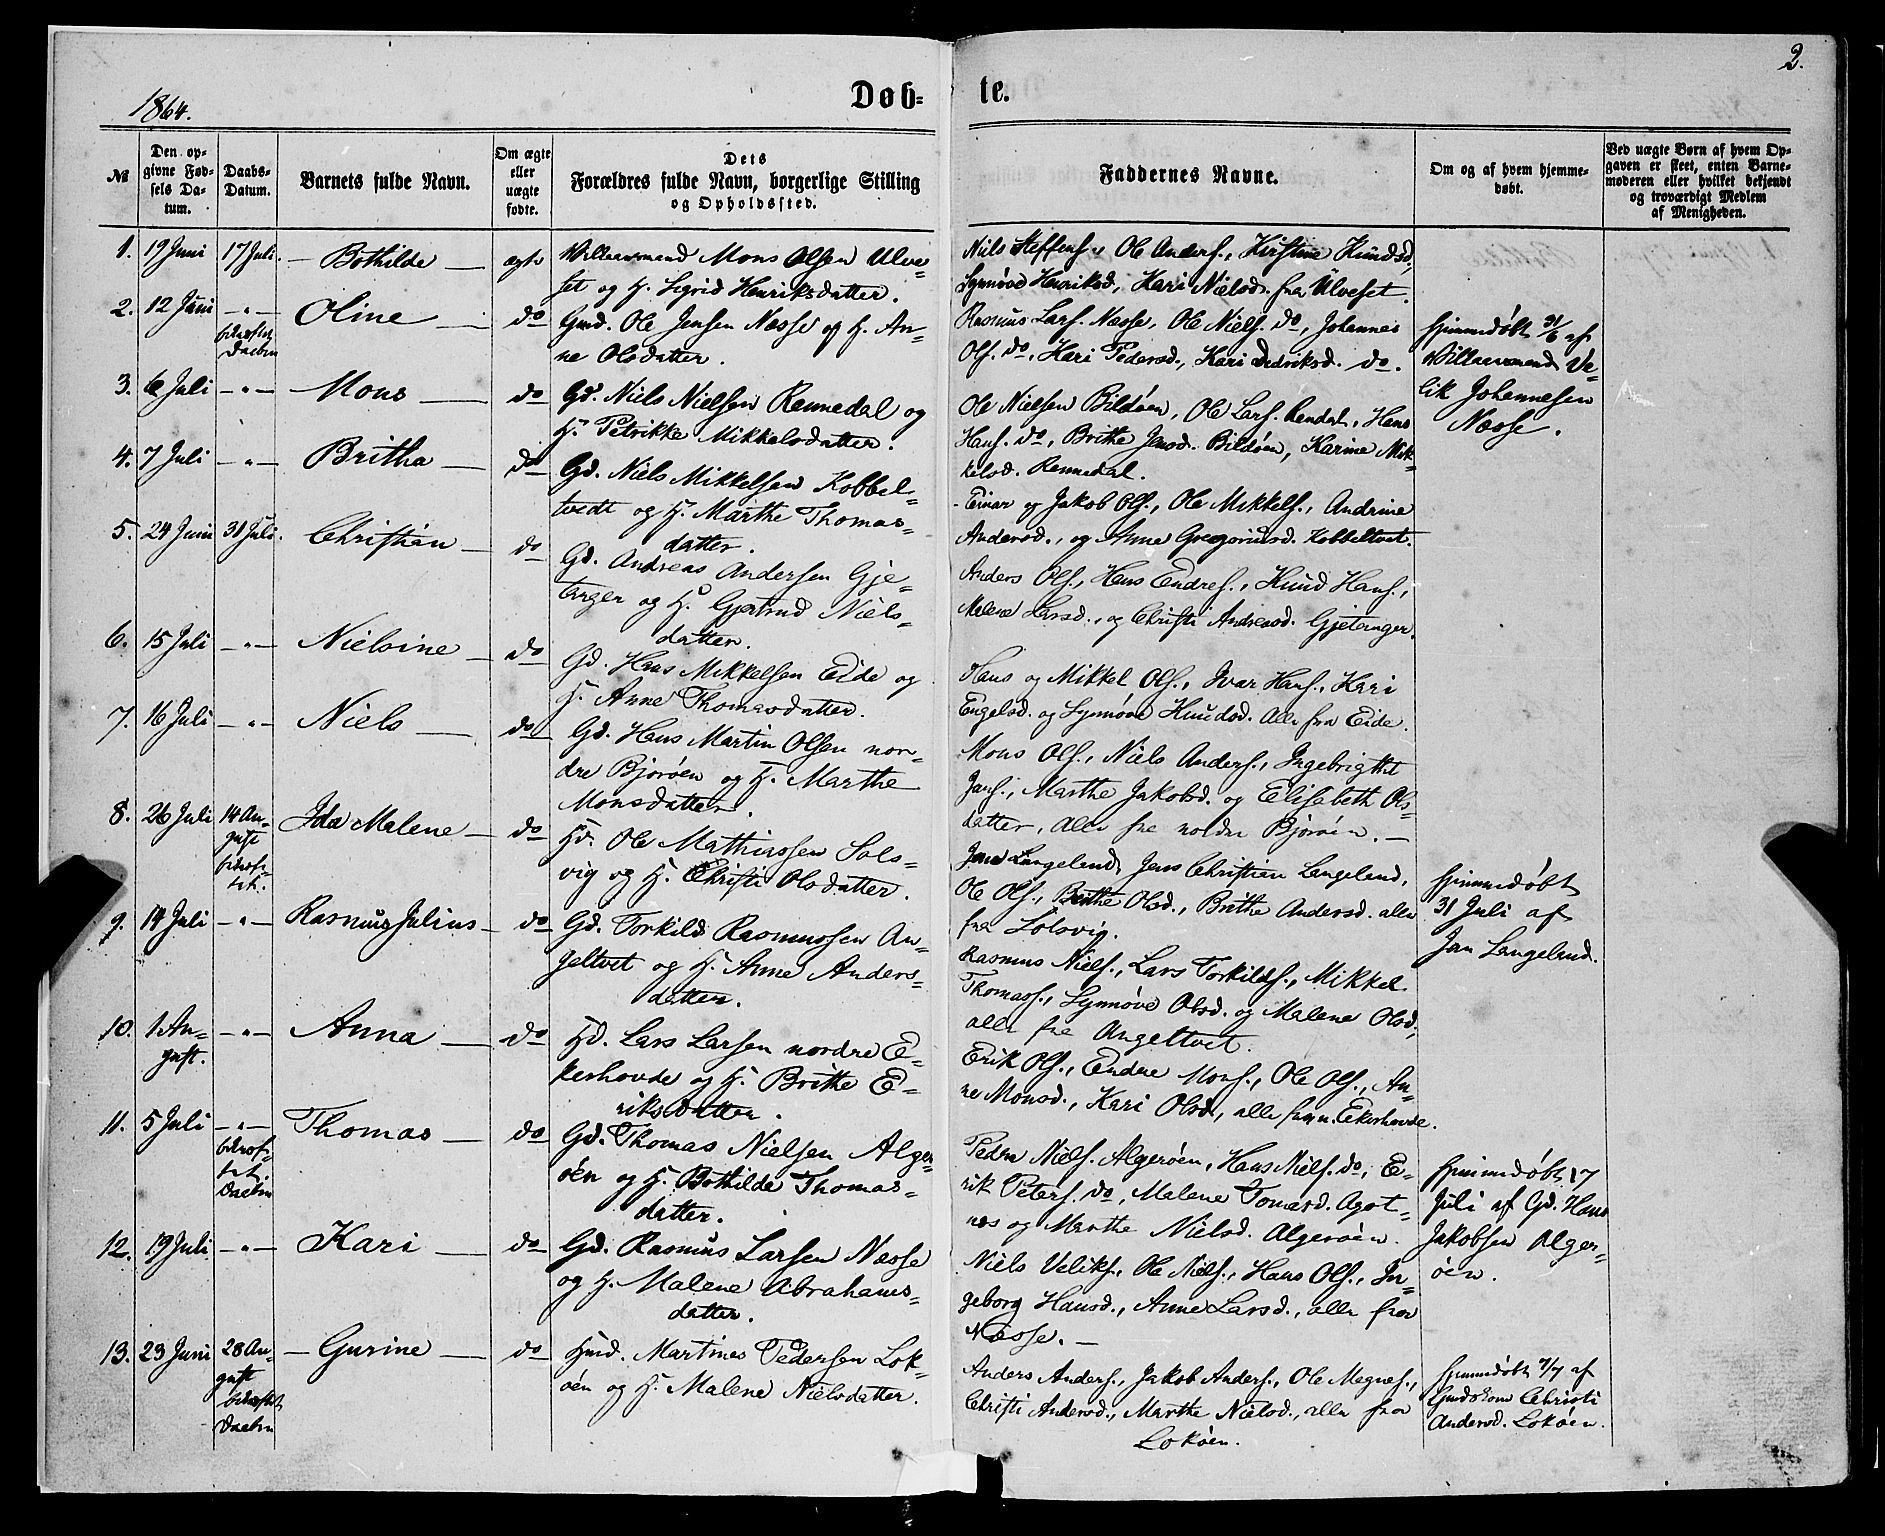 2.
1864.
Døb=
te.
№
Den op-
givne Fød-
sels Da-
tum.
Daabs-
Datum.
Barnets fulde Navn.
Om ægte
eller
uægte
fødte.
Dets
Forældres fulde Navn, borgerlige Stilling
og Opholdssted.
Faddernes Navne.
Om og af hvem hjemme-
døbt.
Ved uægte Børn af hvem Op-
gaven er skeet, enten Barne-
moderen eller hvilket bekjendt
og troværdigt Medlem
af Menigheden.
1. 19 Juni 17 Juli. – Bothilde – ægte
Mons Olsen Ulve-
set og H. Sigrid Henriksdatter.
Niels Steffens., Ole Anders., Kirstine Knudsd.,
Synnøve Henriksd., Kari Nielsd. fra Ulveset.
2. 12 Juni –"– Oline – do
Daaben
Gmd. Ole Jensen Nesse og H. An=
ne Olsdatter.
Rasmus Lars. Nesse, Ole Niels. do, Johannes
Ols. do, Kari Pedersd., Kari Didriksd. do.
Hjemmedøbt af
Ve=
lik Johannesen
Nesse.
3. 6 Juli –"– Mons – do
Gd. Niels Nielsen Rennedal og
H. Petrikke Mikkelsdatter.
Ole Nielsen Bildøen, Ole Lars. Rendal, Hans
Hans. do, Brithe Jensd. Bildøen, Karine Mik=
kelsd. Rennedal.
4. 7 Juli –"– Britha – do
Gd. Niels Mikkelsen Kobbel=
tvedt og H. Marthe Thomas=
datter.
Einar og Jakob Ols., Ole Mikkels., Andrine
Andersd., og Anne Gregoriusd. Kobbeltvet.
5. 24 Juni 31 Juli. Christian – do
Gd. Andreas Andersen Gje=
tanger og H. Gjertrud Niels=
datter.
Anders Ols., Hans Endres., Knud Hans.,
Malene Larsd., og Christi Andreasd. Gjetanger.
6. 15 Juli –"– Nielsine – do
Gd. Hans Mikkelsen Eide og
H. Anne Thomasdatter.
Hans og Mikkel Ols., Ivar Hans., Kari
Engelsd. og Synnøve Knudsd. Alle fra Eide.
7. 16 Juli –"– Niels – do
Gd. Hans Martin Olsen nor=
dre Bjorøen og H. Marthe
Monsdatter.
Mons Ols., Niels Anders., Ingebrigtht
Jans., Marthe Jakobsd. og Elisabeth Ols=
datter, alle fra nordre Bjorøen. –
8. 26 Juli 14 Au=
gust
Ida Malene – do
Hd. Ole Mathiassen Sols=
vig og H. Christi Olsdatter.
Jan Langeland, Jens Christian Langeland,
Ole Ols., Brithe Olsd., Brithe Andersd. alle
fra Solsvig.
Hjemmedøbt
31 Juli af
Jan Langeland.
9. 14 Juli –"– Rasmus Julius – do
Gd. Torkild Rasmussen An=
geltvet og H. Anne Anders=
datter.
Rasmus Niels., Lars Torkilds., Mikkel
Thomass., Synnøve Olsd. og Malene Olsd.
alle fra Angeltvet.
10. 1 Au=
gust. –"– Anna – do
Hd. Lars Larsen nordre E=
kerhovde og H. Brithe E=
riksdatter.
Erik Ols., Endre Mons., Ole Ols., An=
ne Monsd., Kari Olsd., alle fra n. Ekerhovde.
11. 5 Juli –"– Thomas – do
Daaben
Gd. Thomas Nielsen Alger
øen og H. Bothilde Thomas=
datter.
Peder Niels. Algerøen, Hans Niels. do, E=
rik Peters. do, Malene Tomasd. Agot=
nes og Marthe Nielsd. Algerøen.
Hjemmedøbt 17
Juli af Gd. Hans
Jakobsen Alger=
øen.
12. 19 Juli –"– Kari – do
Gd. Rasmus Larsen Nesse
og H. Malene Abrahams=
datter.
Niels Veliks., Ole Niels., Hans Ols., In=
geborg Hansd., Anne Larsd., alle fra
Nesse. –
13. 23 Juni 28 Au=
gust
Daaben
– Gurine – do
Hmd. Martines Pedersen Lok=
øen og H. Malene Nielsdatter.
Anders Anders., Jakob Anders., Ole Magnes.,
Christi Andersd., Marthe Nielsd., alle fra
Lokøen.
Hjemmedøbt 7/7 af
Christi
Andersd. Lokøen.